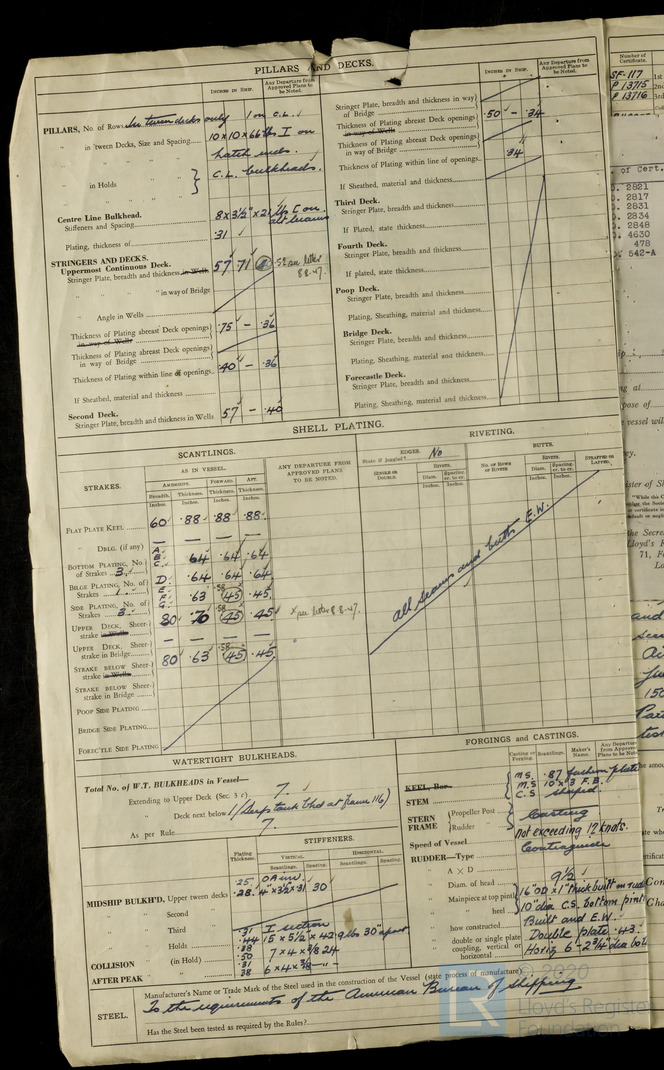 PILLARS AND DECKS.
INCHES IN SHIP.
Any Departure from Approved Plans to be Noted.
PILLARS, No. of Rows In tween decks only 1 on C.L.
" in 'tween Decks, Size and Spacing 10 x 10 x 66 lbs I on
hatch ends.
" in Holds C.L. bulkheads.
Centre Line Bulkhead.
Stiffeners and Spacing 8 x 3½" x 21 lbs [ on
alt beams
Plating, thickness of .31
STRINGERS AND DECKS.
Uppermost Continuous Deck.
Stringer Plate, breadth and thickness in Wells 57 .71 .58 per letter
8.8.47.
" " " " in way of Bridge
" Angle in Wells
Thickness of Plating abreast Deck openings
in way of Wells .75 - .36
Thickness of Plating abreast Deck openings
in way of Bridge
Thickness of Plating within line of openings .40 - .36
If Sheathed, material and thickness
Second Deck.
Stringer Plate, breadth and thickness in Wells 57 - .40
INCHES IN SHIP.
Any Departure from Approved Plans to be Noted.
Stringer Plate, breadth and thickness in way
of Bridge
Thickness of Plating abreast Deck openings
in way of Wells .50 - .34
Thickness of Plating abreast Deck openings
in way of Bridge
Thickness of Plating within line of openings .34
If Sheathed, material and thickness
Third Deck.
Stringer Plate, breadth and thickness
If Plated, state thickness
Fourth Deck.
Stringer Plate, breadth and thickness
If plated, state thickness
Poop Deck.
Stringer Plate, breadth and thickness
Plating, Sheathing, material and thickness
Bridge Deck.
Stringer Plate, breadth and thickness
Plating, Sheathing, material and thickness
Forecastle Deck.
Stringer Plate, breadth and thickness
Plating, Sheathing, material and thickness
SHELL PLATING.
SCANTLINGS.
RIVETING.
STRAKES.
AS IN VESSEL.
ANY DEPARTURE FROM APPROVED PLANS TO BE NOTED.
EDGES. No
State if joggled?
BUTTS.
AMIDSHIPS. FORWARD. AFT.
Breadth. Thickness. Thickness. Thickness.
Inches. Inches.
SINGLE OR DOUBLE.
RIVETS.
Diam. Spacing cr. to cr.
Inches.
No. OF ROWS OF RIVETS.
RIVETS.
Diam. Spacing cr. to cr.
Inches.
STRAPPED OR LAPPED.
FLAT PLATE KEEL 60 .88 .88 .88
DBLG. (if any) — — — —
BOTTOM PLATING, No. of Strakes 3 A. B. C. .64 .64 .64
BILGE PLATING, No. of Strakes 1 D. .64 .64 .64
SIDE PLATING, No. of Strakes 3 E. F. G. .63 .58 .45 .45
UPPER DECK, Sheer-strake in Wells 80 .70 .58 .45 .45 x per letter 8.8.47.
UPPER DECK, Sheer-strake in Bridge — — — —
STRAKE BELOW Sheer-strake in Wells 80 .63 .58 .45 .45
STRAKE BELOW Sheer-strake in Bridge
POOP SIDE PLATING
BRIDGE SIDE PLATING
FOREC'TLE SIDE PLATING
All seams and butts E.W.
WATERTIGHT BULKHEADS.
Total No. of W.T. BULKHEADS in Vessel—
Extending to Upper Deck (Sec. 3 c) 7.
" Deck next below 1 (Deep tank bhd at frame 116)
As per Rule 7.
STIFFENERS.
Plating Thickness.
VERTICAL. HORIZONTAL.
Scantlings. Spacing. Scantlings. Spacing.
MIDSHIP BULKH'D, Upper tween decks .25 .28 OA inv. 4" x 3½ x .31 30
" " Second
" " Third
" " Holds .31 .44 I section 15 x 5½ x 42.9 lbs 30" apart
COLLISION " (in Hold) .38 .50 7 x 4 x 3/8 24
AFTER PEAK " " .31 .38 6 x 4 x 3/8 — " —
FORGINGS and CASTINGS.
Casting or Forging. Scantlings. Maker's Name. Any Departure from Approved Plans to be Noted
KEEL, Bar
STEM M.S. .87 fashion plate
M.S. 10 x 3 F.B.
C.S. shaped
STERN FRAME Propeller Post
Rudder " Casting
Speed of Vessel not exceeding 12 knots.
RUDDER—Type Contraguide
A x D
Diam. of head 9½
Mainpiece at top pintle 16" OD x 1" thick built on rud
" heel 10" dia C.S. bottom pint
how constructed Built and E.W.
double or single plate Double plate .43
coupling, vertical or horizontal Horiz 6 - 2¾" dia bolt
STEEL.
Manufacturer's Name or Trade Mark of the Steel used in the construction of the Vessel (state process of manufacture)
To the requirements of the American Bureau of Shipping
Has the Steel been tested as required by the Rules?
© 2020
Lloyd's Register
Foundation
Number of Certificate.
SF-117
P 13715
P 13716
of Cert.
2821
2817
2831
2834
2848
4630
478
542-A